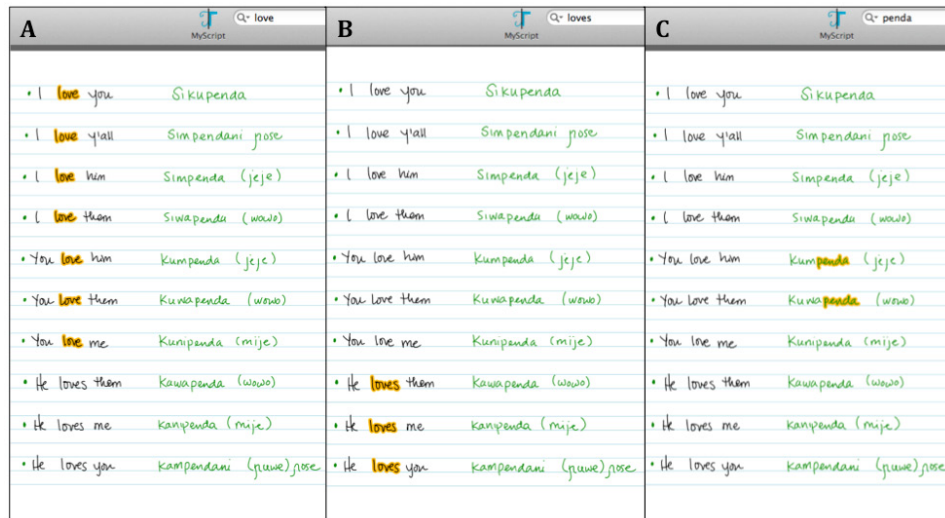 A
love
MyScript
• I love you Sikupenda
• I love y'all Simpendani ɲose
• I love him Simpenda (jeje)
• I love them Siwapenda (wowo)
• You love him Kumpenda (jeje)
• You love them Kuwapenda (wowo)
• You love me Kunipenda (mije)
• He loves them Kawapenda (wowo)
• He loves me kanpenda (mije)
• He loves you kampendani (ɲuwe) ɲose
B
loves
MyScript
• I love you Sikupenda
• I love y'all Simpendani ɲose
• I love him Simpenda (jeje)
• I love them Siwapenda (wowo)
• You love him Kumpenda (jeje)
• You love them Kuwapenda (wowo)
• You love me Kunipenda (mije)
• He loves them Kawapenda (wowo)
• He loves me kanpenda (mije)
• He loves you kampendani (ɲuwe) ɲose
C
penda
MyScript
• I love you Sikupenda
• I love y'all Simpendani ɲose
• I love him Simpenda (jeje)
• I love them Siwapenda (wowo)
• You love him Kumpenda (jeje)
• You love them Kuwapenda (wowo)
• You love me Kunipenda (mije)
• He loves them Kawapenda (wowo)
• He loves me kanpenda (mije)
• He loves you kampendani (ɲuwe) ɲose